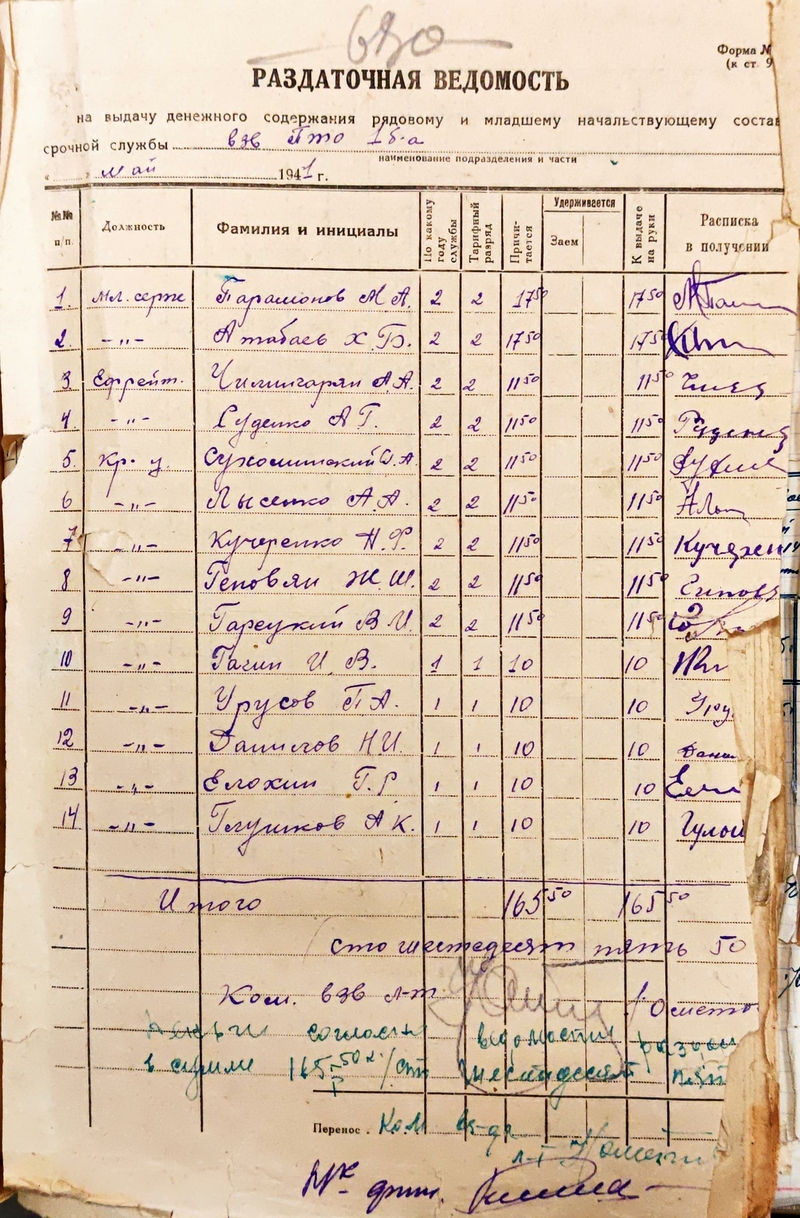 680
Форма №
(к ст. 9
РАЗДАТОЧНАЯ ВЕДОМОСТЬ
на выдачу денежного содержания рядовому и младшему начальствующему состав
срочной службы взв Пто 1б-а
наименование подразделения и части
« » май 1941 г.
№№ п/п. Должность Фамилия и инициалы По какому году службы Тарифный разряд Причитается Удерживается Заем К выдаче на руки Расписка в получении
1. Мл. серж Парамонов М А. 2 2 17 50 17 50
2. -„- Атабаев Х. Б. 2 2 17 50 17 50
3 Ефрейт. Чилингарян А.А. 2 2 11 50 11 50
4 -„- Суденко А Г. 2 2 11 50 11 50
5. Кр-ц. Сухомлинский А. 2 2 11 50 11 50
6 -„- Лысенко А.А. 2 2 11 50 11 50
7 -„- Кучеренко Н.Ф. 2 2 11 50 11 50 Кучерен
8 -„- Геповян Ж.Ш. 2 2 11 50 11 50
9 -„- Гарецкий В И. 2 2 11 50 11 50
10 -„- Гагин И. В. 1 1 10 10
11 -„- Урусов П А. 1 1 10 10 Уру
12 -„- Данилов Н И. 1 1 10 10 Дани
13 -„- Елохин Г. Г 1 1 10 10 Ело
14 -„- Глушков А К. 1 1 10 10
Итого 165 50 165 50
сто шестьдесят пять 50
Ком. взв л-т
согласно ведомости
в сумме 165 р 50 к. /сто шестьдесят пят
Перенос . Ком
л-т